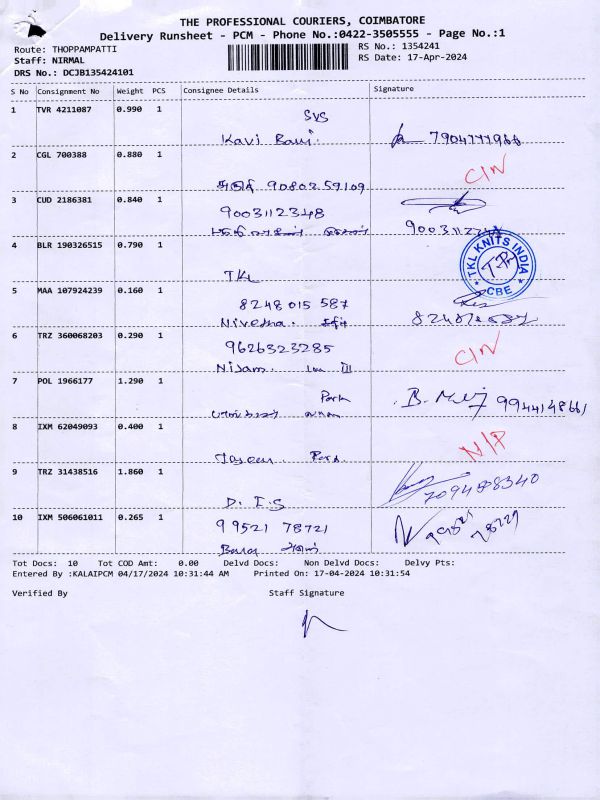 THE PROFESSIONAL COURIERS, COIMBATORE
Delivery Runsheet - PCM - Phone No.:0422-3505555 - Page No.:1
Route: THOPPAMPATTI
RS No.: 1354241
Staff: NIRMAL
RS Date: 17-Apr-2024
DRS No.: DCJB135424101
S No Consignment No Weight PCS Consignee Details Signature
1 TVR 4211087 0.990 1
SVS
Kavi
2 CGL 700388 0.880 1
CIN
90802 59109
3 CUD 2186381 0.840 1
9003112348
4 BLR 190326515 0.790 1
TKL KNITS INDIA
CBE
TKL
5 MAA 107924239 0.160 1
8248 015 587
Nivedha.
6 TRZ 360068203 0.290 1
9626323285
CIN
Nisam.
7 POL 1966177 1.290 1
Park
9944148661
8 IXM 62049093 0.400 1
N/P
Park
9 TRZ 31438516 1.860 1
7094888340
D. I. S
10 IXM 506061011 0.265 1
99521 78721
Tot Docs: 10 Tot COD Amt: 0.00 Delvd Docs: Non Delvd Docs: Delvy Pts:
Entered By :KALAIPCM 04/17/2024 10:31:44 AM Printed On: 17-04-2024 10:31:54
Verified By Staff Signature